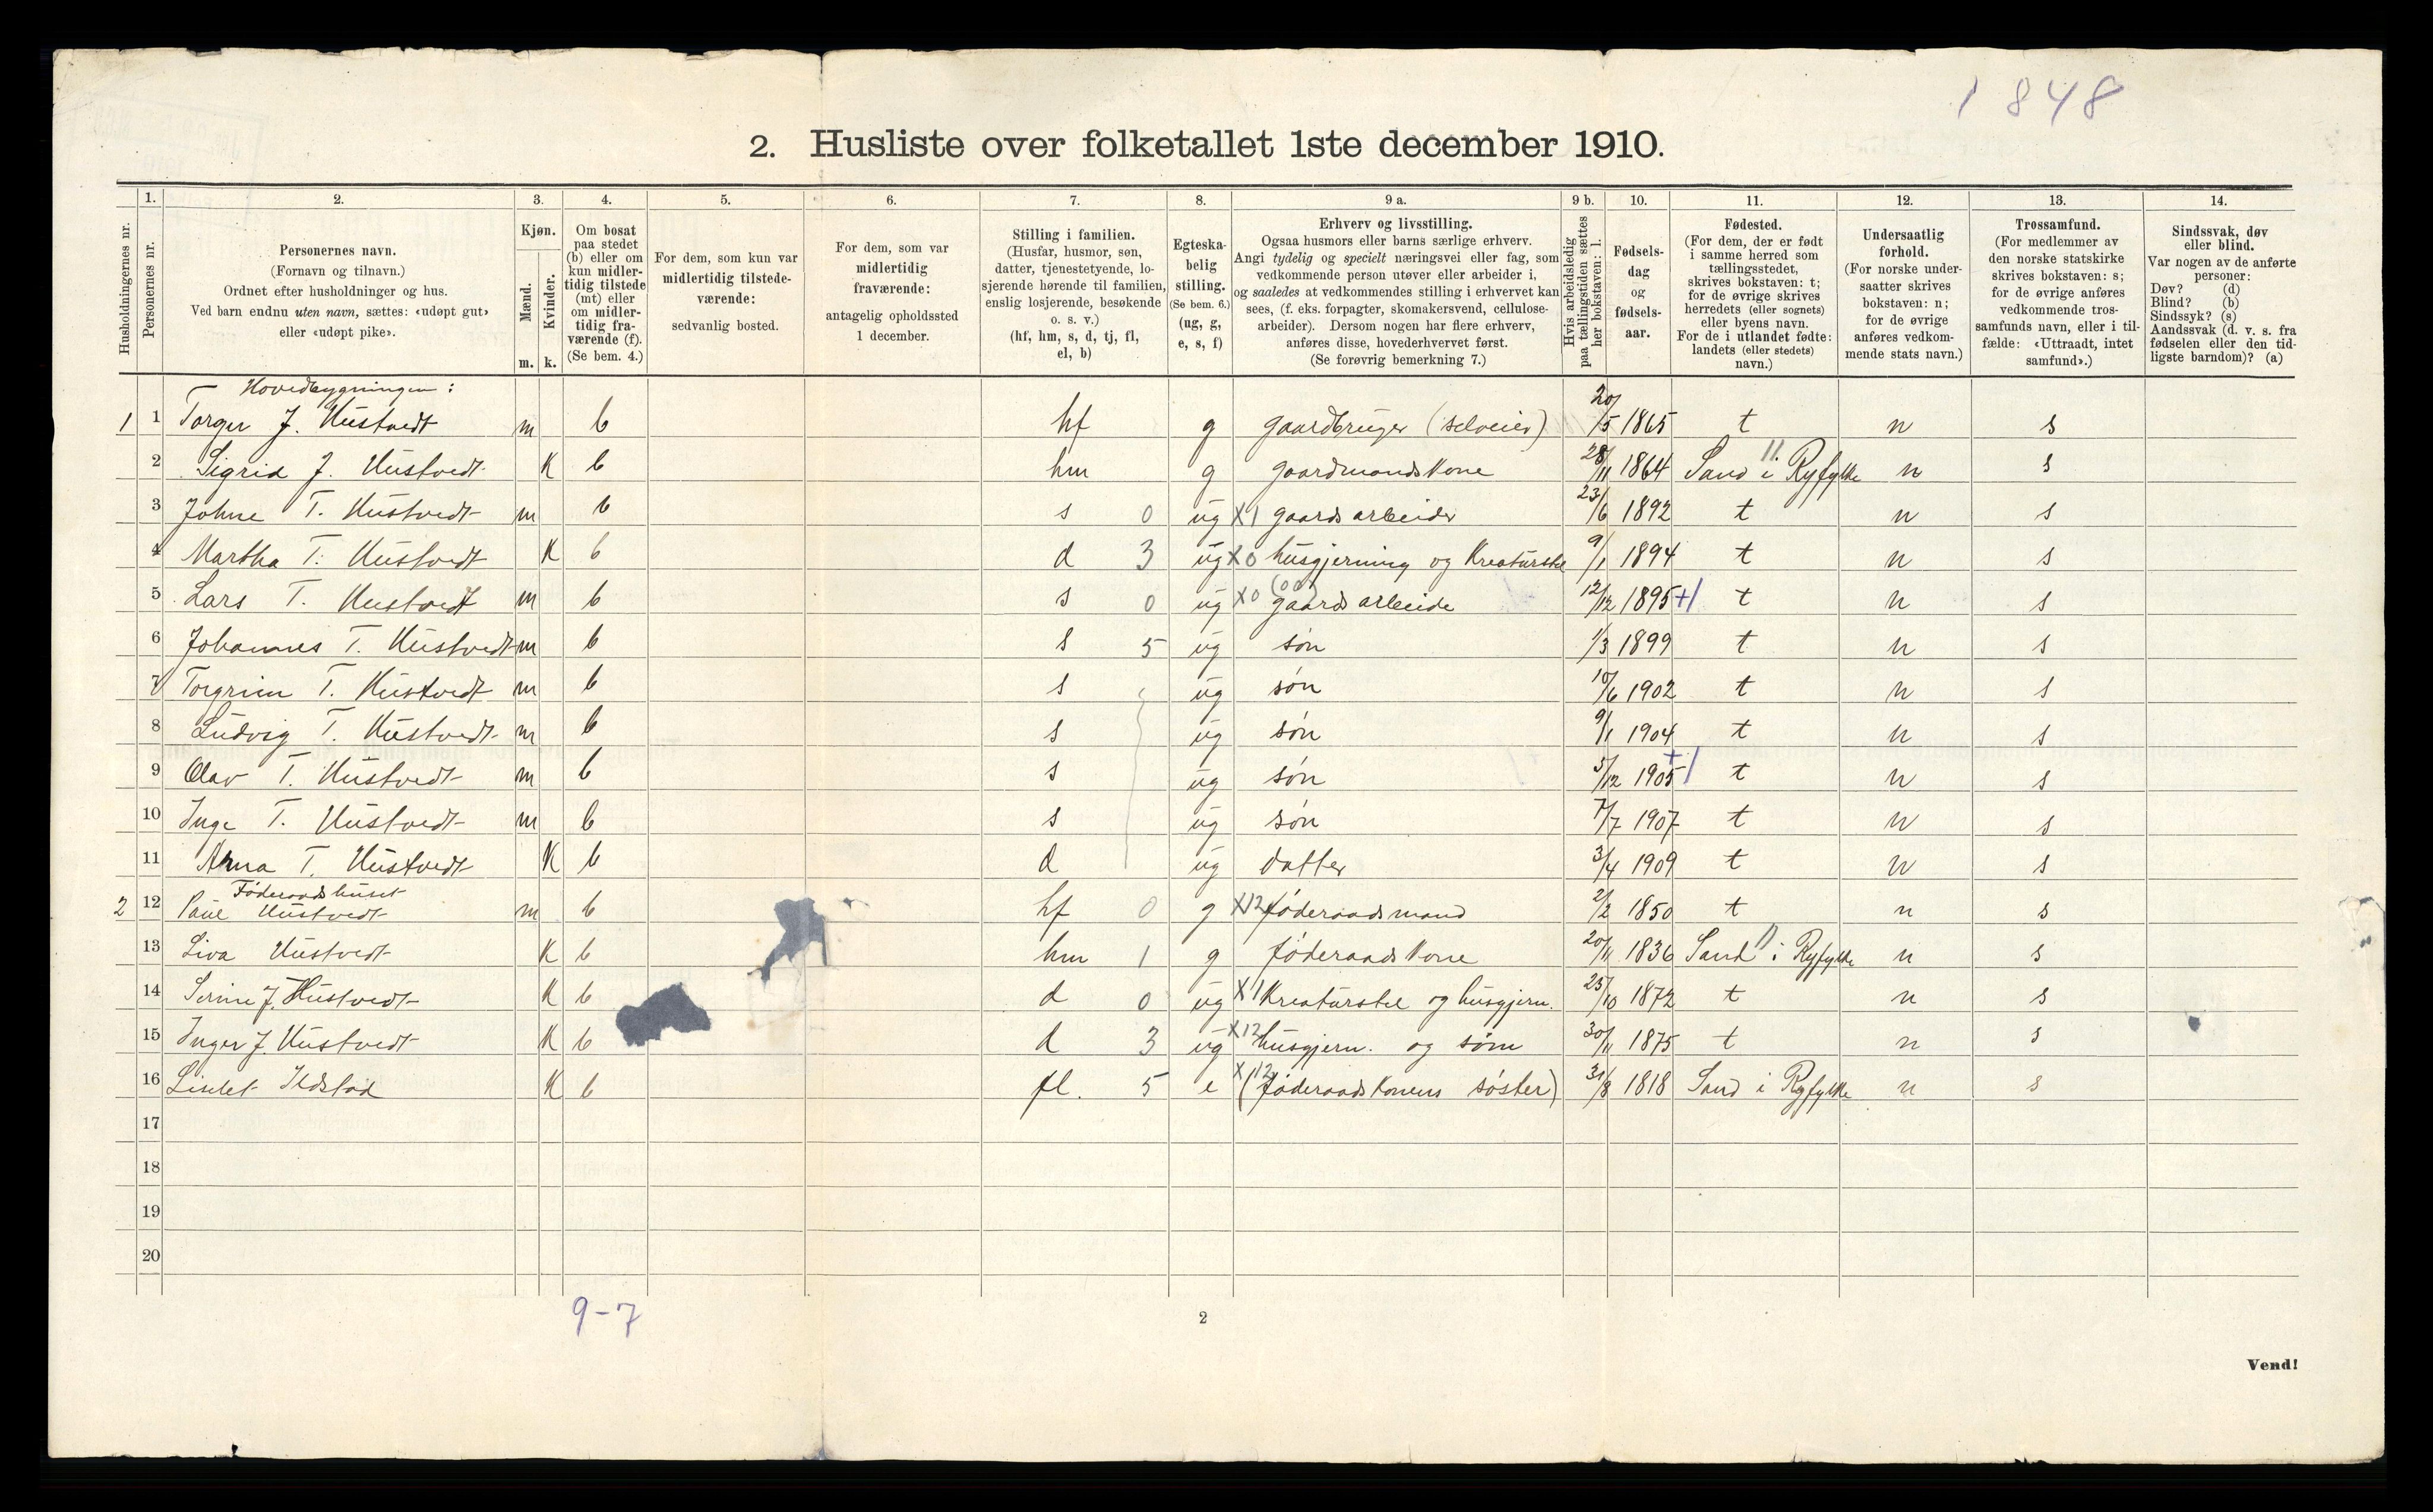 1848
2. Husliste over folketallet 1ste december 1910.
Husholdningernes nr.
1. Personernes nr.
2. Personernes navn.
(Fornavn og tilnavn.)
Ordnet efter husholdninger og hus.
Ved barn endnu uten navn, sættes: «udøpt gut»
eller «udøpt pike».
3. Kjøn.
Mænd. Kvinder.
m. k.
4. Om bosat
paa stedet
(b) eller om
kun midler-
tidig tilstede
(mt) eller
om midler-
tidig fra-
værende (f).
(Se bem. 4.)
5. For dem, som kun var
midlertidig tilstede-
værende:
sedvanlig bosted.
6. For dem, som var
midlertidig
fraværende:
antagelig opholdssted
1 december.
7. Stilling i familien.
(Husfar, husmor, søn,
datter, tjenestetyende, lo-
sjerende hørende til familien,
enslig losjerende, besøkende
o. s. v.)
(hf, hm, s, d, tj, fl,
el, b)
8. Egteska-
belig
stilling.
(Se bem. 6.)
(ug, g,
e, s, f)
9 a. Erhverv og livsstilling.
Ogsaa husmors eller barns særlige erhverv.
Angi tydelig og specielt næringsvei eller fag, som
vedkommende person utøver eller arbeider i,
og saaledes at vedkommendes stilling i erhvervet kan
sees, (f. eks. forpagter, skomakersvend, cellulose-
arbeider). Dersom nogen har flere erhverv,
anføres disse, hovederhvervet først.
(Se forøvrig bemerkning 7.)
9 b. Hvis arbeidsledig
paa tællingstiden sættes
her bokstaven: l.
10. Fødsels-
dag
og
fødsels-
aar.
11. Fødested.
(For dem, der er født
i samme herred som
tællingsstedet,
skrives bokstaven: t;
for de øvrige skrives
herredets (eller sognets)
eller byens navn.
For de i utlandet fødte:
landets (eller stedets)
navn.)
12. Undersaatlig
forhold.
(For norske under-
saatter skrives
bokstaven: n;
for de øvrige
anføres vedkom-
mende stats navn.)
13. Trossamfund.
(For medlemmer av
den norske statskirke
skrives bokstaven: s;
for de øvrige anføres
vedkommende tros-
samfunds navn, eller i til-
fælde: «Uttraadt, intet
samfund».)
14. Sindssvak, døv
eller blind.
Var nogen av de anførte
personer:
Døv? (d)
Blind? (b)
Sindssyk? (s)
Aandssvak (d. v. s. fra
fødselen eller den tid-
ligste barndom)? (a)
Hovedbygningen:
1 1 Torger J. Hustvedt m b hf g gaardbruger (selveier) 20/5 1865 t n s
2 Sigrid J. Hustvedt K b hm g gaardmandskone 28/11 1864 Sand i Ryfylke 11. n s
3 Johne T. Hustvedt m b s 0 ug X1 gaardsarbeider 23/6 1892 t n s
4 Martha T. Hustvedt K b d 3 ug X0 husgjerning og Kreaturstel 9/1 1894 t n s
5 Lars T. Hustvedt m b s 0 ug X0 gaardsarbeide 12/12 1895 +1 t n s
6 Johannes T. Hustvedt m b s 5 ug søn 1/3 1899 t n s
7 Torgrim T. Hustvedt m b s ug søn 10/6 1902 t n s
8 Ludvig T. Hustvedt m b s ug søn 9/1 1904 t n s
9 Olav T. Hustvedt m b s ug søn 5/12 1905 +1 t n s
10 Inge T. Hustvedt m b s ug søn 7/7 1907 t n s
11 Anna T. Hustvedt K b d ug datter 3/4 1909 t n s
Føderaadshuset
2 12 Paul Hustvedt m b hf 0 g X12 føderaadsmand 2/2 1850 t n s
13 Siva Hustvedt K b hm 1 g føderaadskone 20/11 1836 Sand i Ryfylke 11 n s
14 Serine J. Hustvedt K b d 0 ug X1 Kreaturstel og husgjern. 25/10 1872 t n s
15 Inger J. Hustvedt K b d 3 ug X12 husgjern. og søm 30/11 1875 t n s
16 Lisbet Ildstad K b fl. 5 e X12 (føderaadskonens søster) 31/8 1818 Sand i Ryfylke n s
17
18
19
20
9-7
2
Vend!